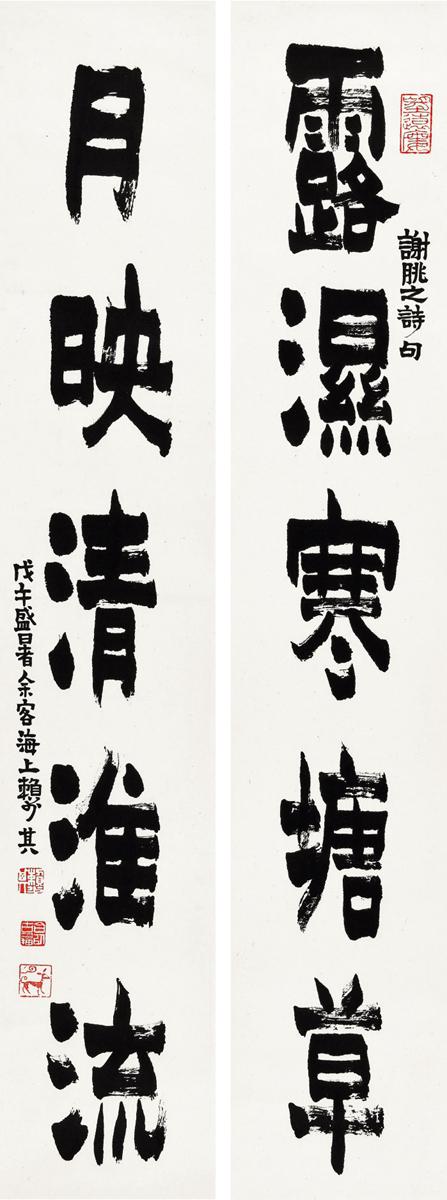 謝朓之詩句
露濕寒塘草
月映清淮流
戊午盛暑余客海上賴少其